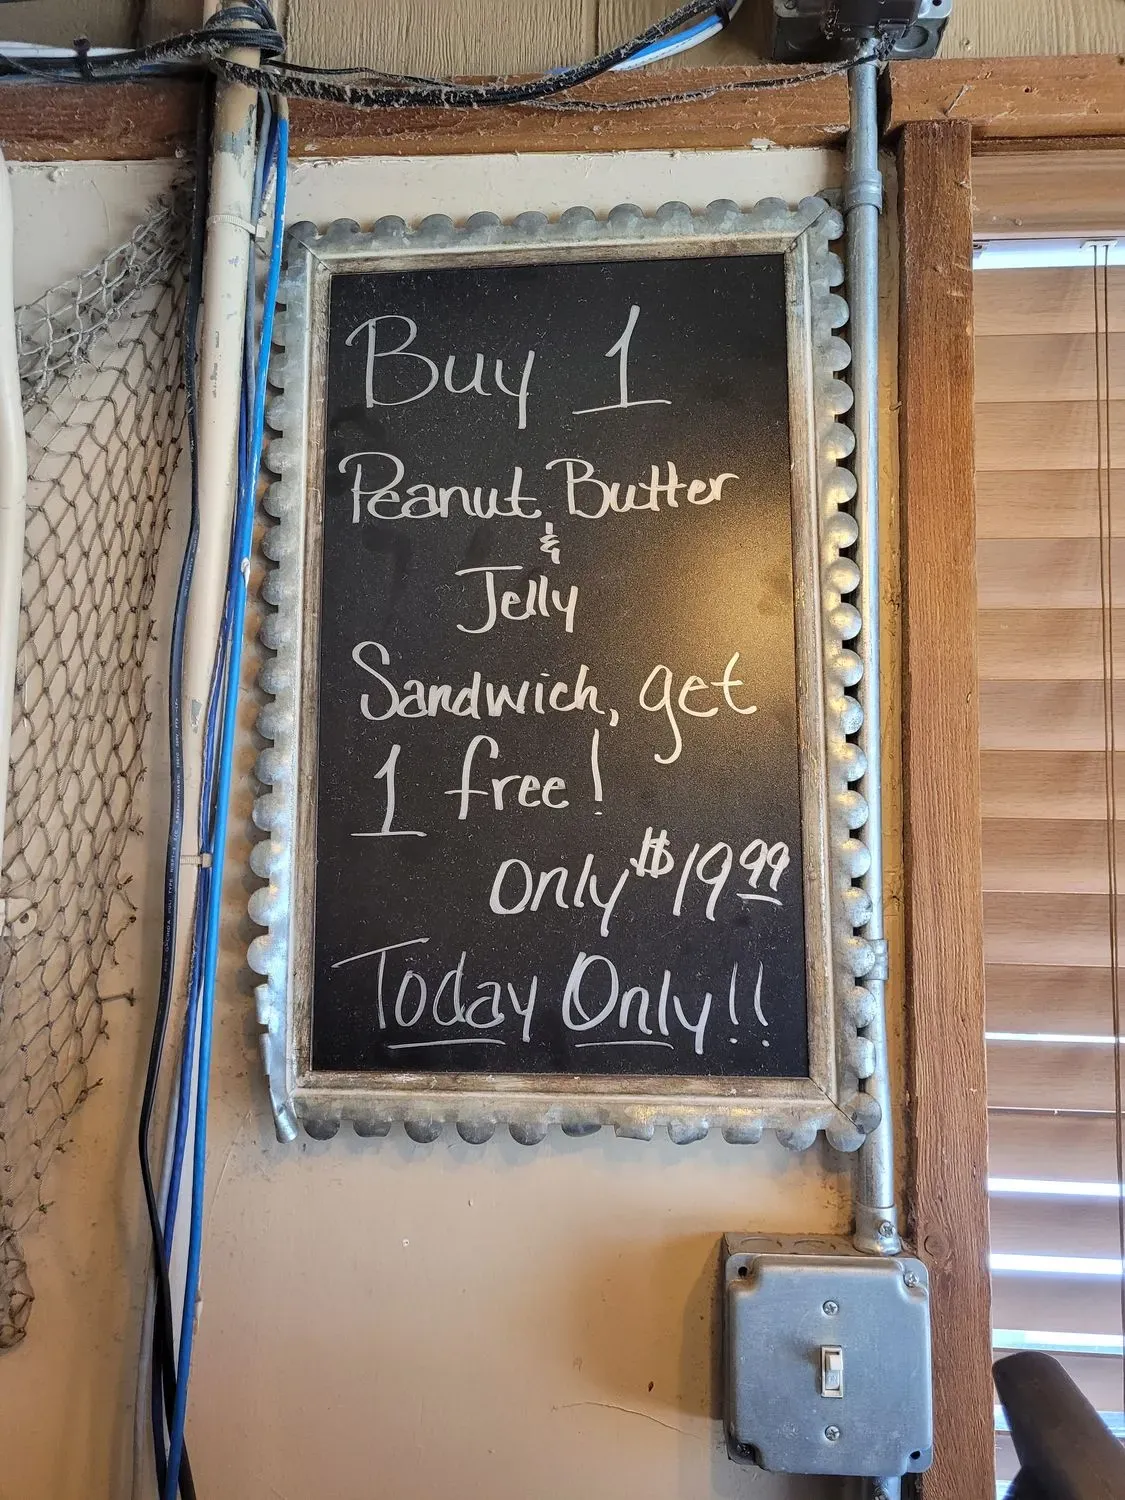 Buy 1
Peanut Butter
&
Jelly
Sandwich, get
1 free!
only $19.99
Today Only!!